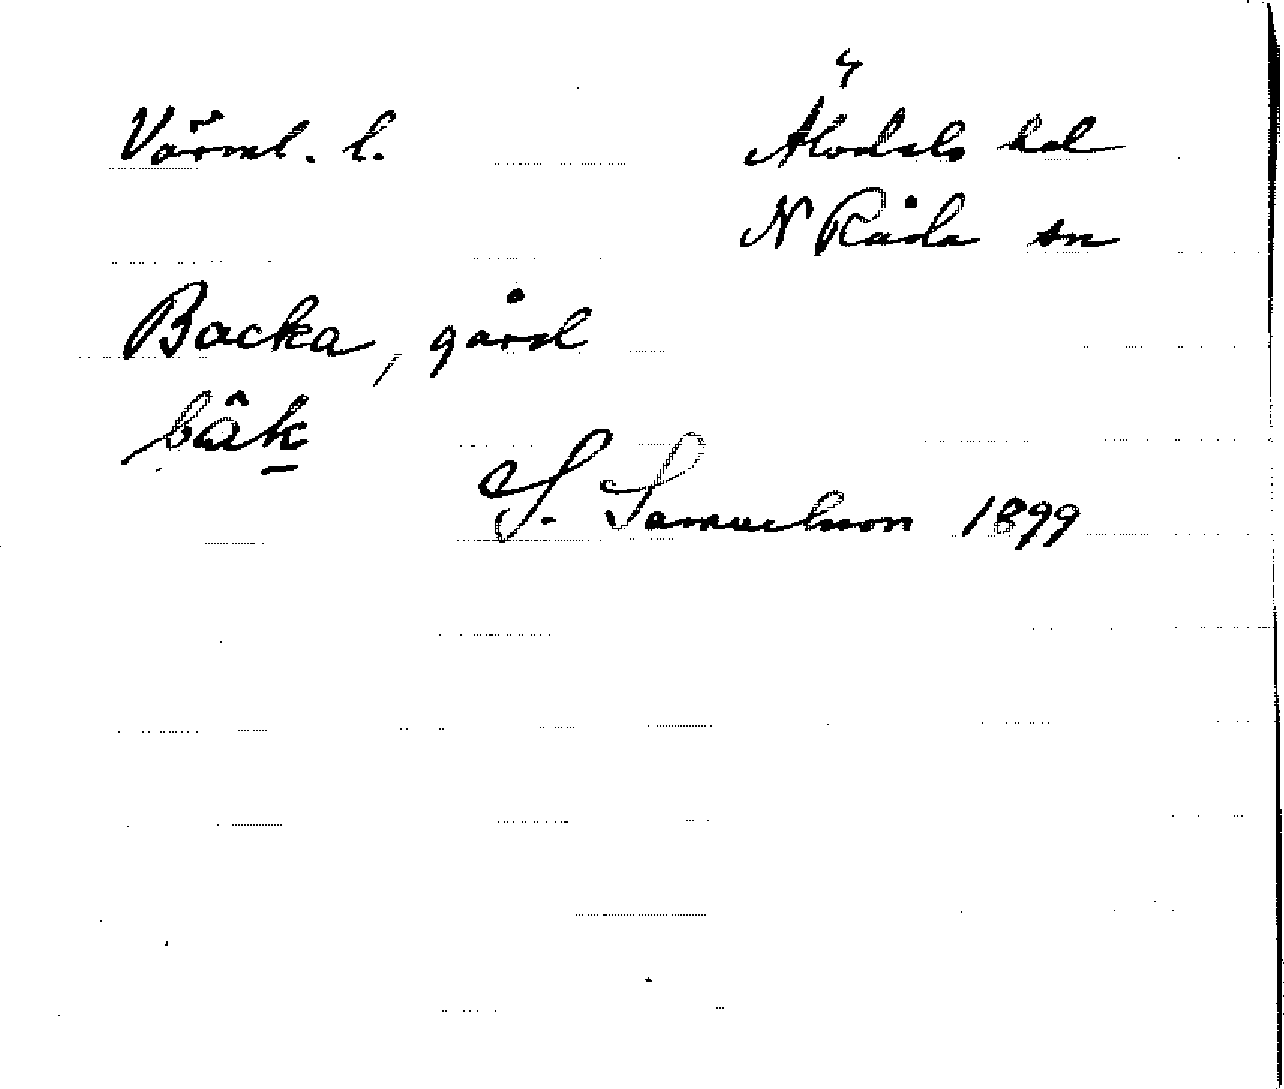 Värml. l. Älvdals hd
N Råda sn
Backa, gård
bâk
S. Samuelson 1899